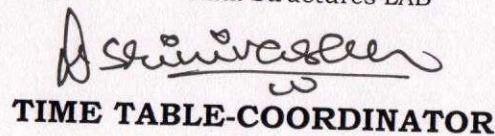 Structures LAB
A Srinivasan
TIME TABLE-COORDINATOR